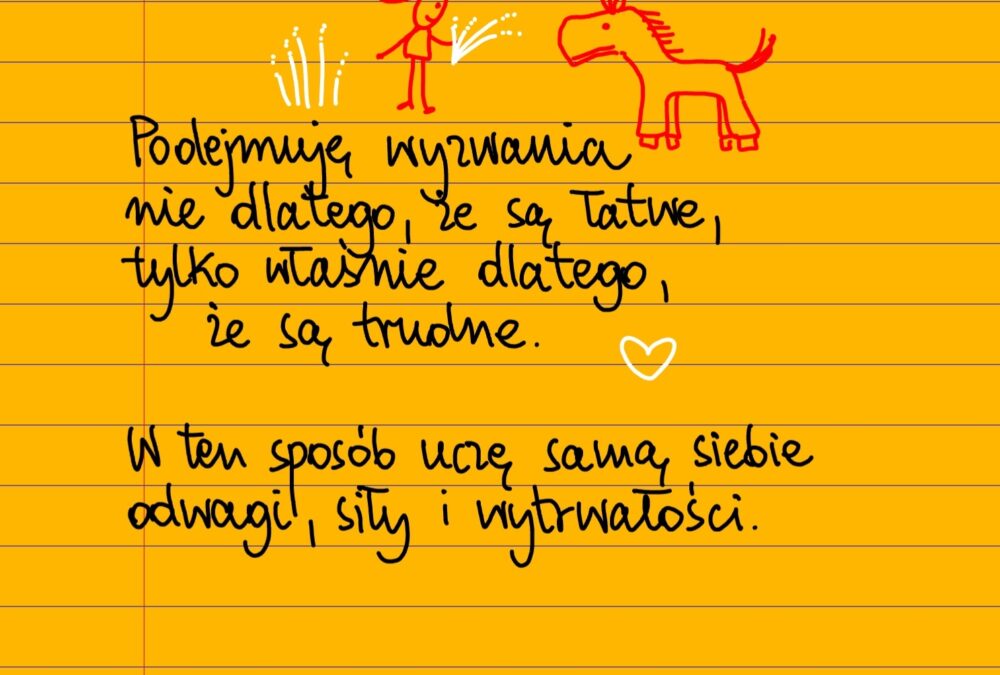 Podejmuję wyzwania
nie dlatego, że są łatwe,
tylko właśnie dlatego,
że są trudne.
W ten sposób uczę samą siebie
odwagi, siły i wytrwałości.